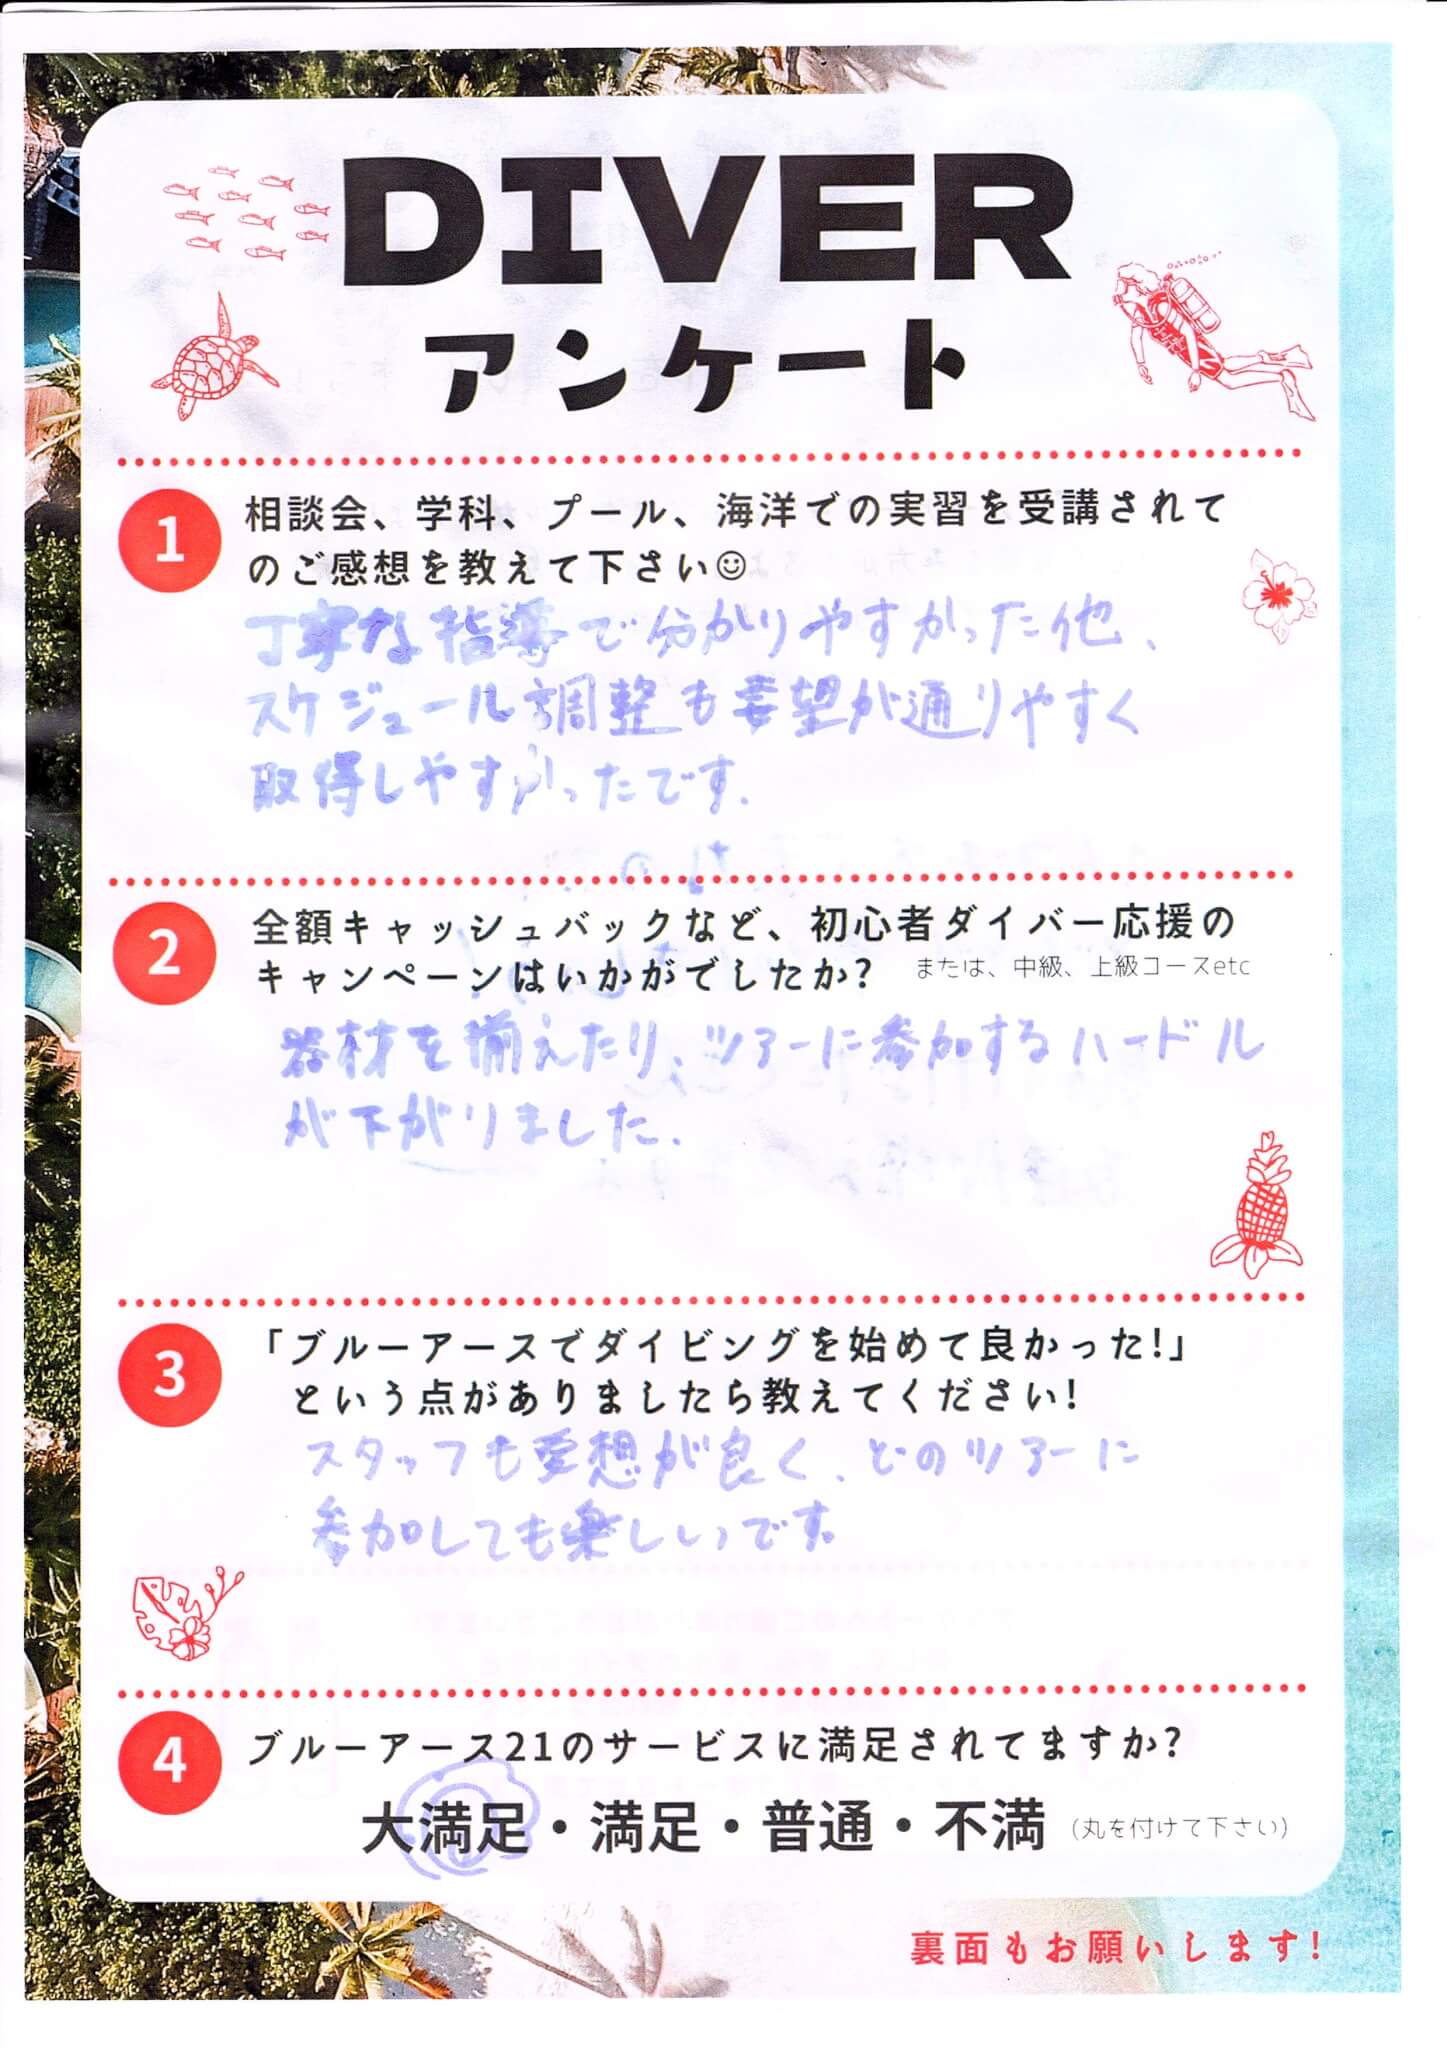 DIVER
アンケート
1
相談会、学科、プール、海洋での実習を受講されて
のご感想を教えて下さい
丁寧な指導で分かりやすかった他、
スケジュール調整も要望が通りやすく
取得しやすかったです.
2
全額キャッシュバックなど、初心者ダイバー応援の
キャンペーンはいかがでしたか? または、中級、上級コースetc
器材を揃えたり、ツアーに参加するハードル
が下がりました.
3
「ブルーアースでダイビングを始めて良かった!」
という点がありましたら教えてください!
スタッフも愛想が良く、どのツアーに
参加しても楽しいです。
4
ブルーアース21のサービスに満足されてますか?
大満足・満足・普通・不満 (丸を付けて下さい)
裏面もお願いします!